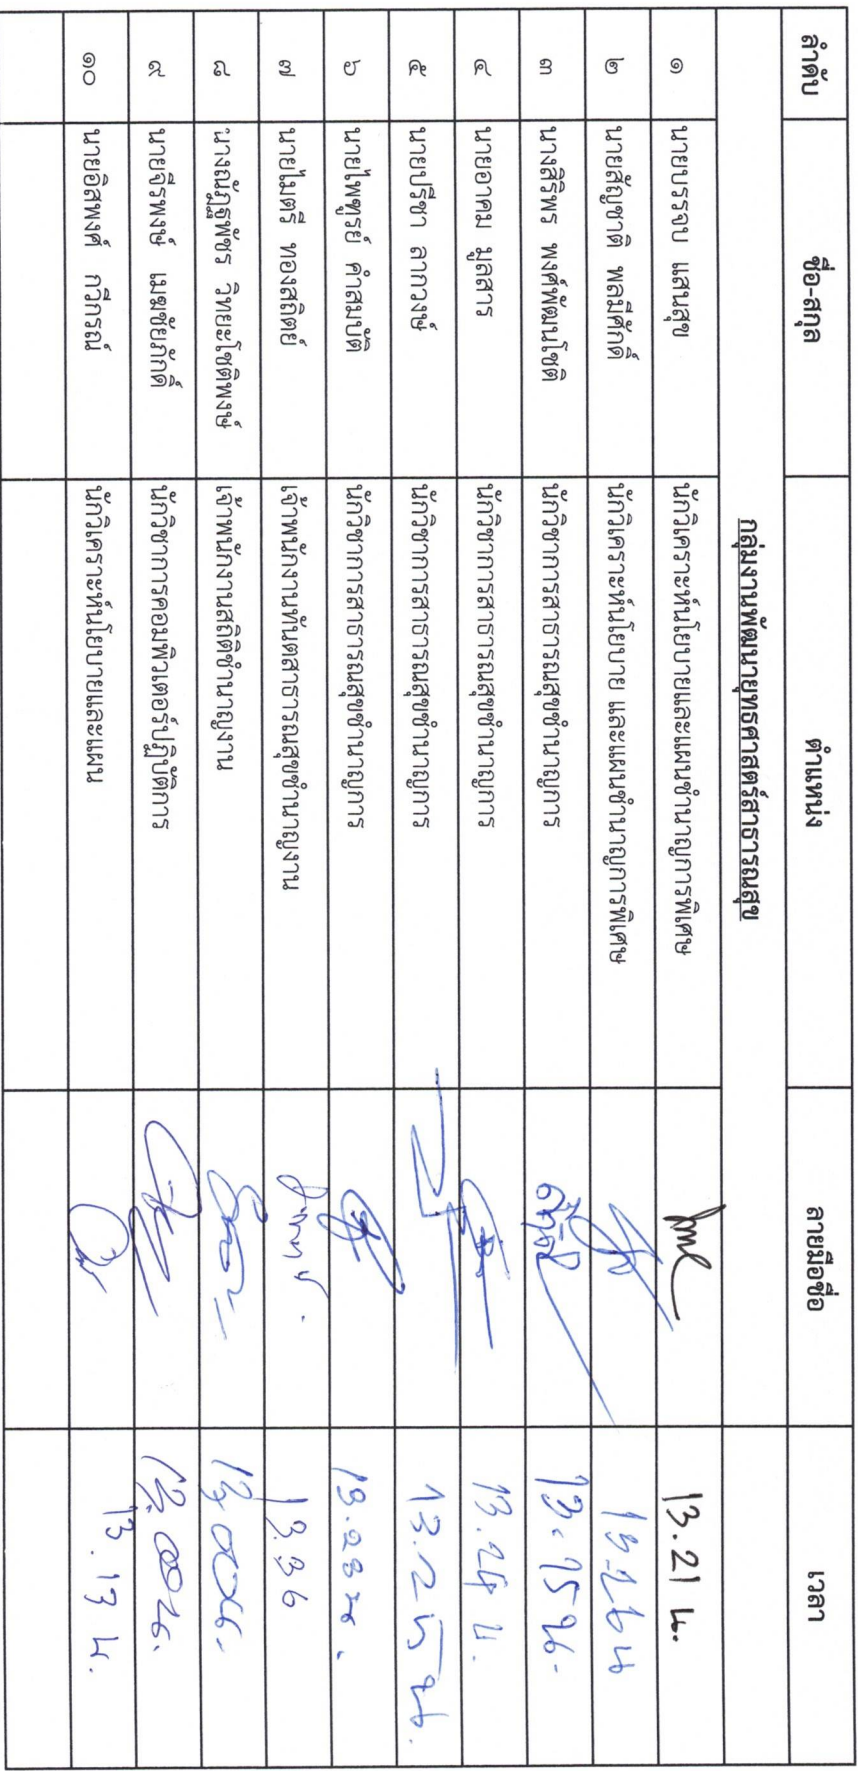 ลำดับ ชื่อ-สกุล ตำแหน่ง ลายมือชื่อ เวลา
กลุ่มงานพัฒนายุทธศาสตร์สาธารณสุข
๑ นายบรรจบ แสนสุข นักวิเคราะห์นโยบายและแผนชำนาญการพิเศษ 13.21 น.
๒ นายสัญชาติ พลมีศักดิ์ นักวิเคราะห์นโยบาย และแผนชำนาญการพิเศษ 13.26 น
๓ นางสิริพร พงศ์พัฒนโชติ นักวิชาการสาธารณสุขชำนาญการ 13.15 น.
๔ นายอาคม มูลสาร นักวิชาการสาธารณสุขชำนาญการ 13.24 น.
๕ นายปรีชา ลากวงษ์ นักวิชาการสาธารณสุขชำนาญการ 13.25 น.
๖ นายไพฑูรย์ คำสมบัติ นักวิชาการสาธารณสุขชำนาญการ
๗ นายไมตรี ทองสถิตย์ เจ้าพนักงานทันตสาธารณสุขชำนาญงาน 13.36
๘ นางณัฏฐพัชร วิทยะโชติพงษ์ เจ้าพนักงานสถิติชำนาญงาน 13.00 น.
๙ นายจีรพงษ์ เมฆชัยภักดิ์ นักวิชาการคอมพิวเตอร์ปฏิบัติการ 13.00 น.
๑๐ นายอิสพงศ์ กวีกรณ์ นักวิเคราะห์นโยบายและแผน 13.13 น.